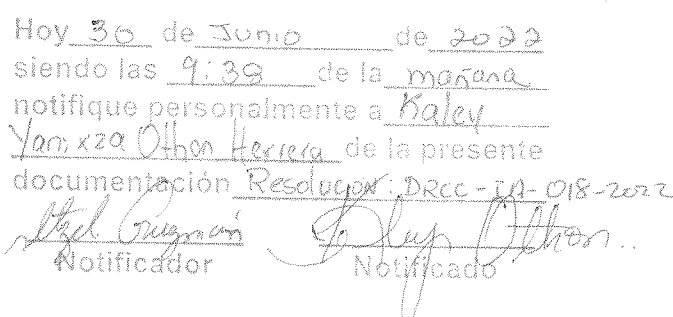 Hoy 30 de Junio de 2022
siendo las 9:38 de la mañana
notifique personalmente a Kaley
Yanixza Othon Herrera de la presente
documentación Resolucion: DRCC-IA-018-2022
Itzel Guzmán Kaley Othon
Notificador Notificado